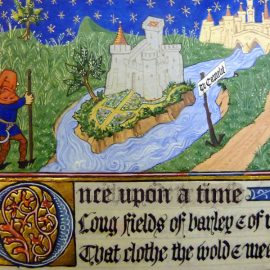 To Camelot
Once upon a time
Long fields of barley & of
That clothe the wold & mee